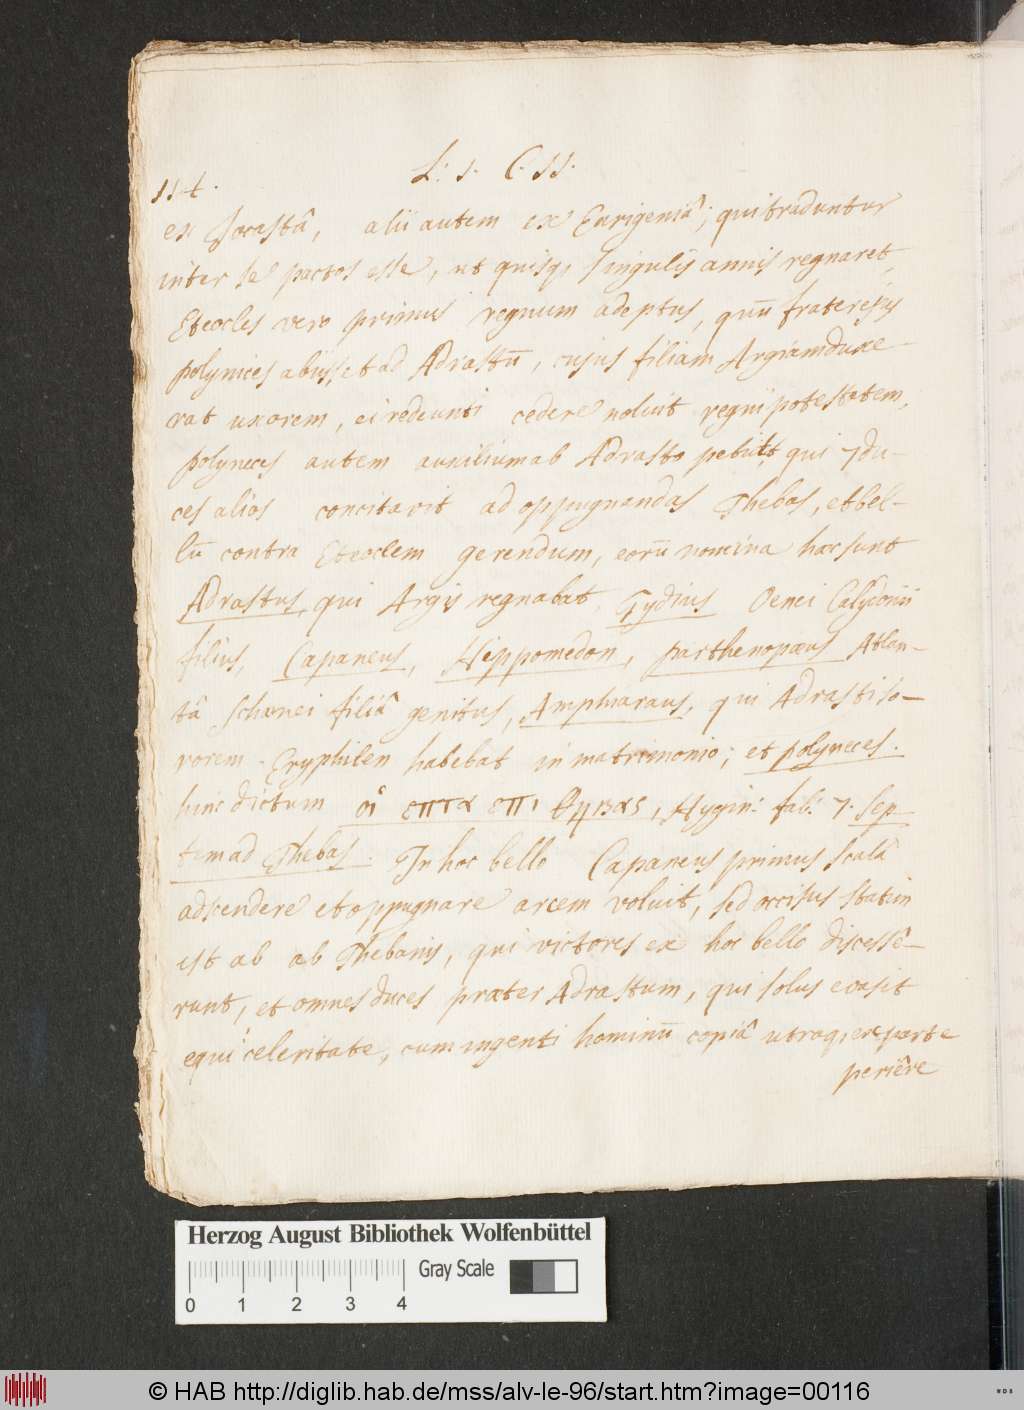 114.
L: 1. C. 11.
ex Jocastâ, alii autem ex Eurigeniâ; qui traduntur
inter se pactos esse, ut quisq, singulis annis regnaret,
Eteocles vero primus regnum adeptus, quū frater ejus
polynices abiisset ad Adrastū, cujus filiam Argiam duxe-
rat uxorem, ei redeunti cedere noluit regni potestatem,
polyneces autem auxilium ab Adrasto petiit, qui 7 du-
ces alios concitavit ad oppugnandas Thebas, et bel-
lū contra Eteoclem gerendum, eorū nomina haec sunt
Adrastus, qui Argis regnabat, Tydius Oenei Calydonii
filius, Capaneus, Hippomedon, parthenopaeus Atlan-
tâ Schaenei filiâ genitus, Amphiaraus, qui Adrasti so-
rorem Eryphilen habebat in matrimonio; et polyneces.
hinc dictum οἱ επτα επι θηβας, Hygin: fab: 7. Sep
tem ad Thebas. In hoc bello Capaneus primus scalâ
adscendere et oppugnare arcem voluit, sed occisus statim
est ab ab Thebanis, qui victores ex hoc bello discessê-
runt, et omnes duces praeter Adrastum, qui solus evasit
equi celeritate, cum ingenti hominū copiâ utroq, ex parte
periêre
Herzog August Bibliothek Wolfenbüttel
0 1 2 3 4 Gray Scale
© HAB http://diglib.hab.de/mss/alv-le-96/start.htm?image=00116